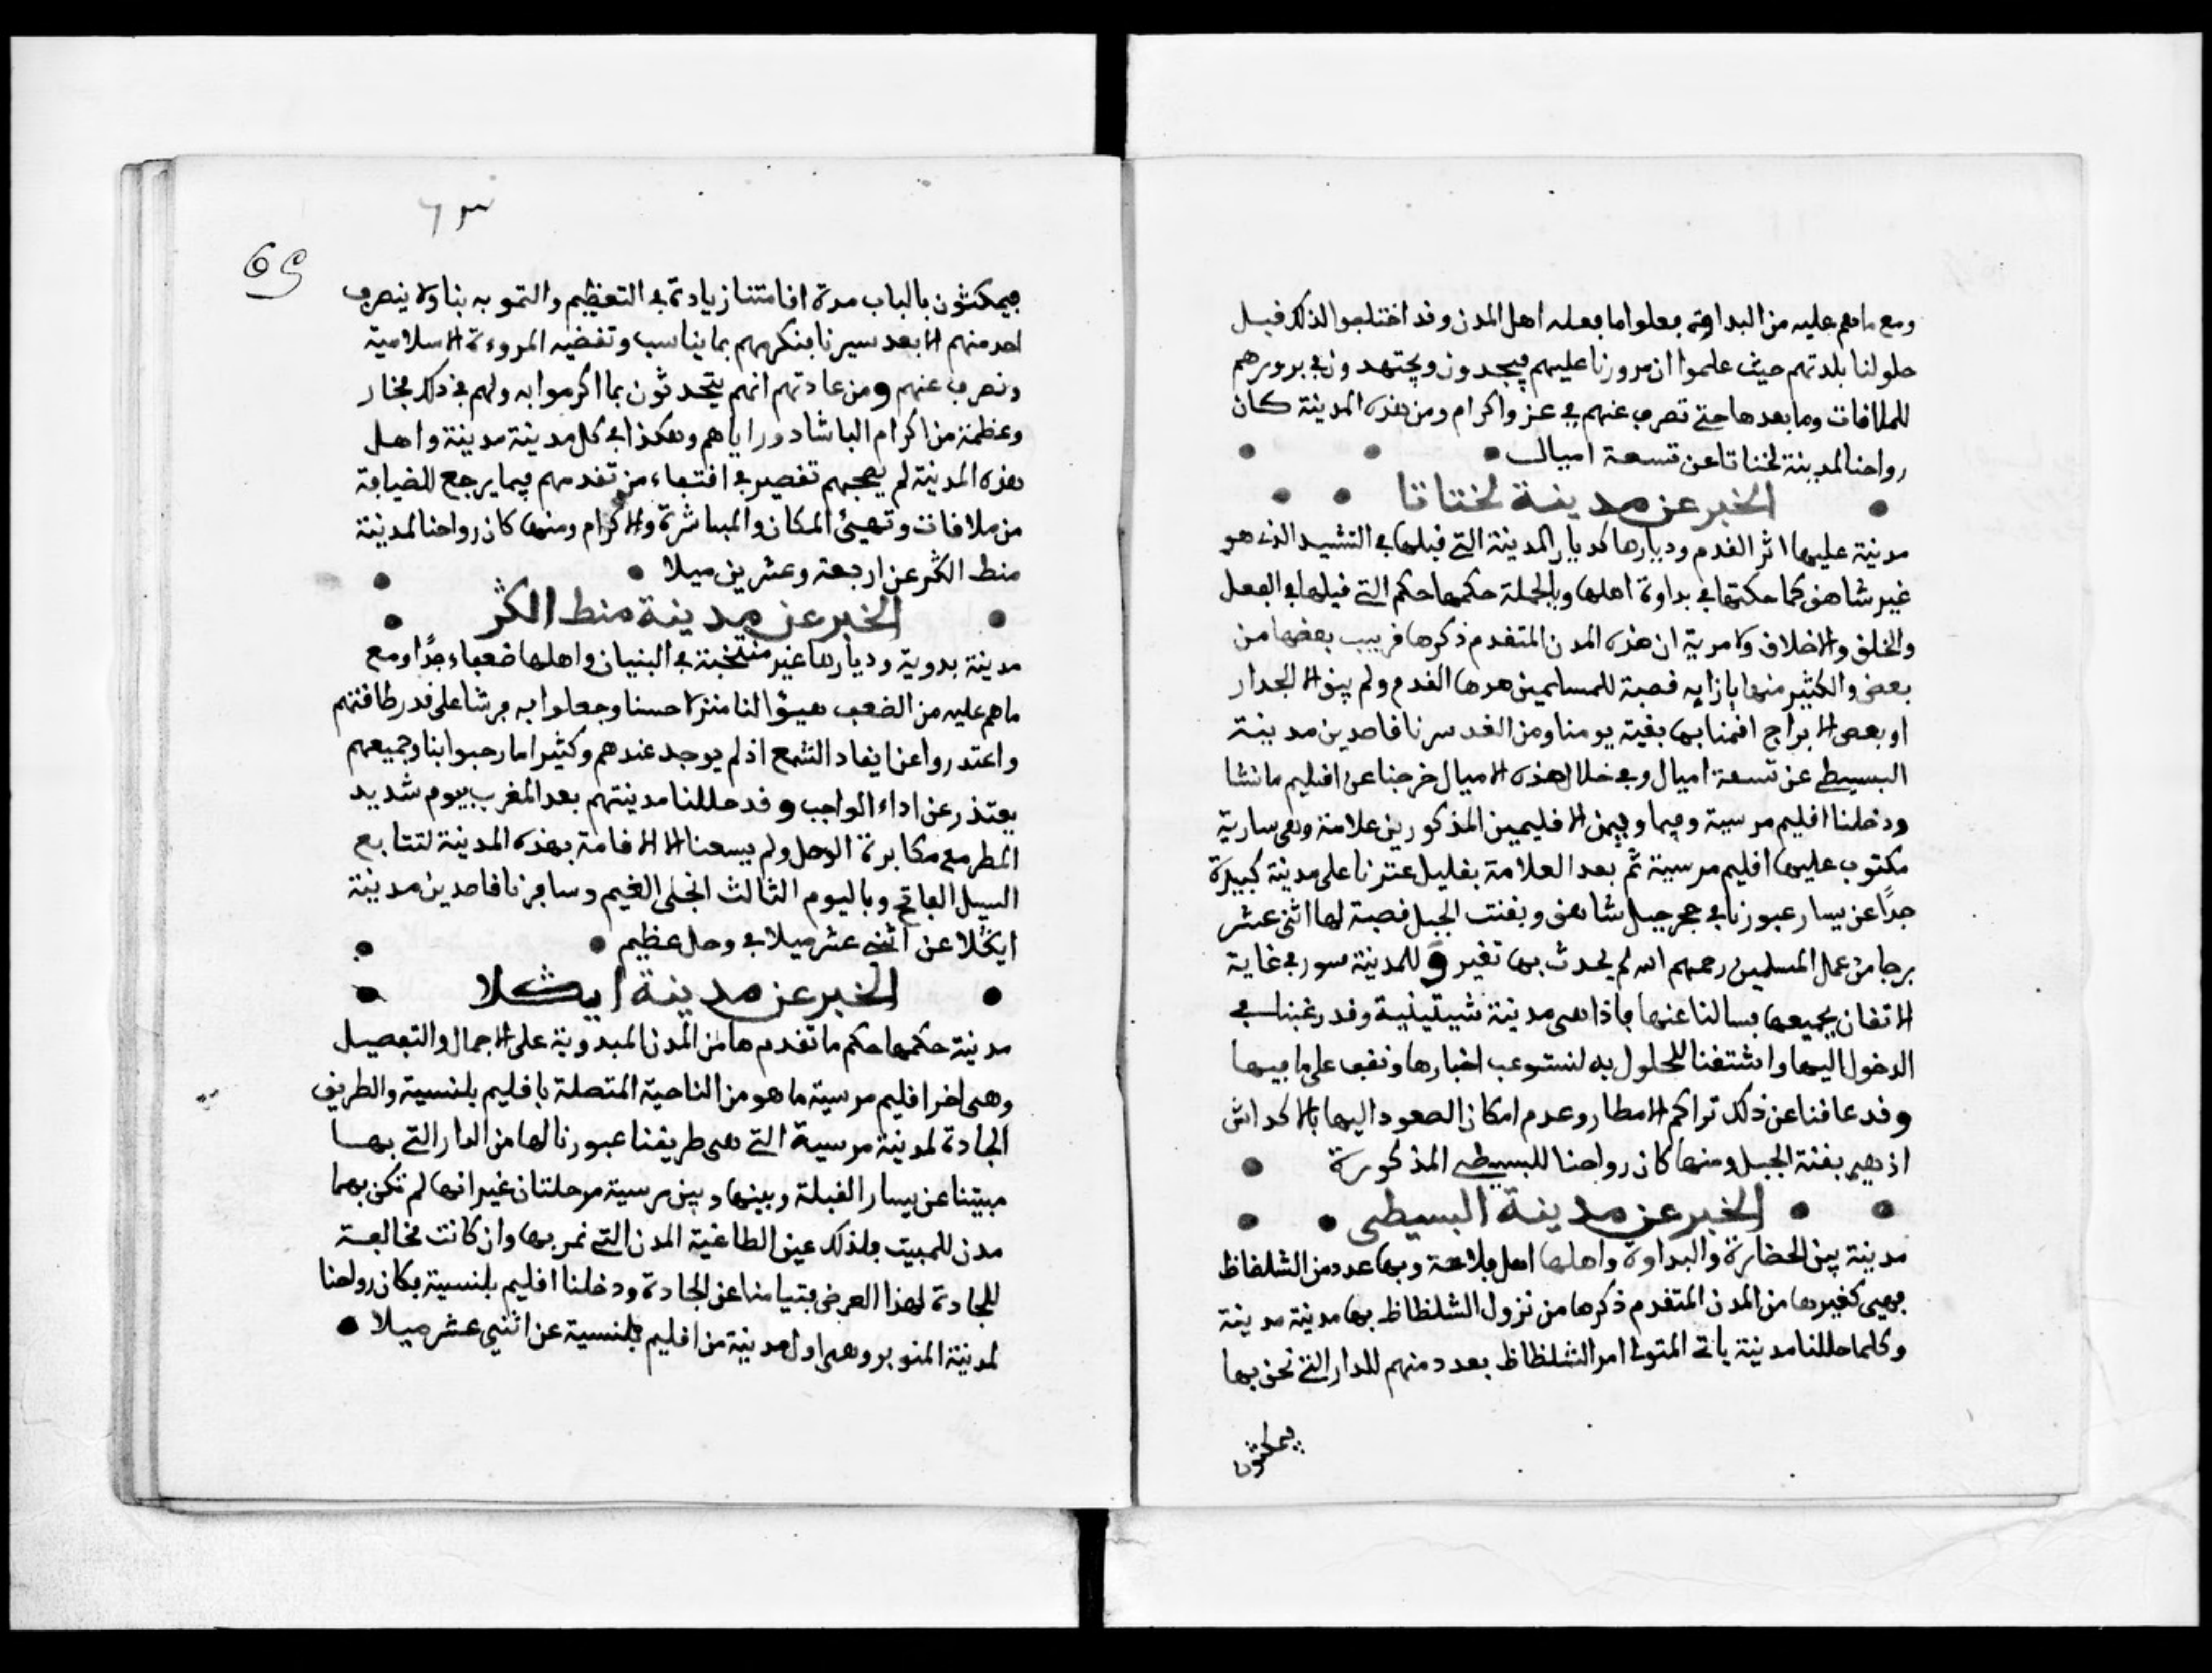 ومع ما هم عليه من البداوة فعلوا ما فعله اهل المدن وقد اختلفوا لذلك قبل
حلولنا بلدتهم حيث علموا ان مرورنا عليهم فيجدون ويجتهدون في برورهم
للملاقات وما بعدها حتى نصرف عنهم في عز واكرام ومن هذه المدينة كان
رواحنا لمدينة لختاتا عن تسعة اميال
الخبر عن مدينة لختاتا
مدينة عليها اثر القدم وديارها كديار المدينة التي قبلها في التشييد الذي هو
غير شاهق كما حكتها في بداوة اهلها وبالجملة حكمها حكم التي قبلها في الفعل
والخلق والاخلاق ولا مرية ان هذه المدن المتقدم ذكرها قريب بعضها من
بعض والكثير منها بازايه قصبة للمسلمين هدها القدم ولم يبق الا الجدار
او بعض الابراج اقمنا بها بقية يومنا ومن الغد سرنا قاصدين مدينة
البسيطي عن تسعة اميال وفي خلال هذه الاميال خرجنا عن اقليم مانشا
ودخلنا اقليم مرسية وفيما وبين الاقليمين المذكورين علامة وهي سارية
مكتوب عليها اقليم مرسية ثم بعد العلامة بقليل عثرنا على مدينة كبيرة
جدًا عن يسار عبورنا في حجر جبل شاهق وبقنت الجبل قصبة لها اثنى عشر
برجا من عمل المسلمين رحمهم الله لم يحدث بها تغير وللمدينة سور في غاية
الاتقان بجميعها فسالنا عنها فاذا هي مدينة شيتيلية وقد رغبنا في
الدخول اليها واشتقنا للحلول به لنستوعب اخبارها ونقف على ما فيها
وقد عاقنا عن ذلك تراكم الامطار وعدم امكان الصعود اليها بالاكداش
اذ هي بقنة الجبل ومنها كان رواحنا للبسيطي المذكورة
الخبر عن مدينة البسيطي
مدينة بين الحضارة والبداوة واهلها اهل فلاحة وبها عدد من الشلظاظ
فهي كغيرها من المدن المتقدم ذكرها من نزول الشلظاظ بها مدينة مدينة
وكلما حللنا مدينة ياتي المتولى امر الشلظاظ بعدد منهم للدار التي نحن بها
فيمكثون
٦٣
65
فيمكثون بالباب مدة اقامتنا زيادة في التعظيم والتنويه بنا ولا ينصرف
احد منهم الا بعد سيرنا فنكرمهم بما يناسب وتقضيه المروءة الاسلامية
ونصرف عنهم ومن عادتهم انهم يتحدثون بما اكرموا به ولهم في ذلك فخار
وعظمة من اكرام الباشادور اياهم وهكذا في كل مدينة مدينة واهل
هذه المدينة لم يصحبهم تقصير في اقتفاء من تقدمهم فيما يرجع للضيافة
من ملاقات وتهيئ المكان والمباشرة والاكرام ومنها كان رواحنا لمدينة
منط الكثر عن اربعة وعشرين ميلا
الخبر عن مدينة منط الكثر
مدينة بدوية وديارها غير منتخبة في البنيان واهلها ضعفاء جدًا ومع
ما هم عليه من الضعف هيؤا لنا منزلا حسنا وجعلوا به فرشا على قدر طاقتهم
واعتذروا عن ايقاد الشمع اذ لم يوجد عندهم وكثيرا ما رحبوا بنا وجميعهم
يعتذر عن اداء الواجب وقد حللنا مدينتهم بعد المغرب بيوم شديد
المطر مع مكابرة الوحل ولم يسعنا الا الاقامة بهذه المدينة لتتابع
السيل الفاتح وباليوم الثالث انجلى الغيم وسافرنا قاصدين مدينة
ايثكلا عن اثنى عشر ميلا في وحل عظيم
الخبر عن مدينة ايثكلا
مدينة حكمها حكم ما تقدم ها من المدن المبدوية على الاجمال والتفصيل
وهي اخر اقليم مرسية ما هو من الناحية المتصلة باقليم بلنسية والطريق
الجادة لمدينة مرسية التي هي طريقنا عبورنا لها من الدار التي بها
مبيتنا عن يسار القبلة وبينها وبين مرسية مرحلتان غير انها لم تكن بهما
مدن للمبيت فلذلك عين الطاغية المدن التي نمر بها وان كانت مخالفة
للجادة لهذا العرض فتيامنا عن الجادة ودخلنا اقليم بلنسية فكان رواحنا
لمدينة المنوبر وهي اول مدينة من اقليم بلنسية عن اثني عشر ميلا